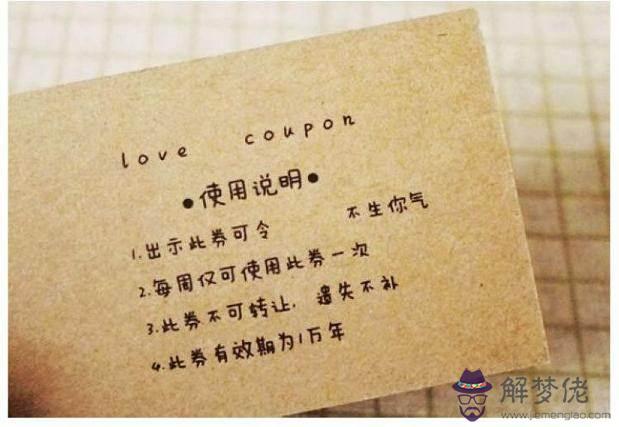 love coupon
●使用说明●
1.出示此券可令 不生你气
2.每周仅可使用此券一次
3.此券不可转让，遗失不补
4.此券有效期为1万年
解梦佬
www.jiemenglao.com